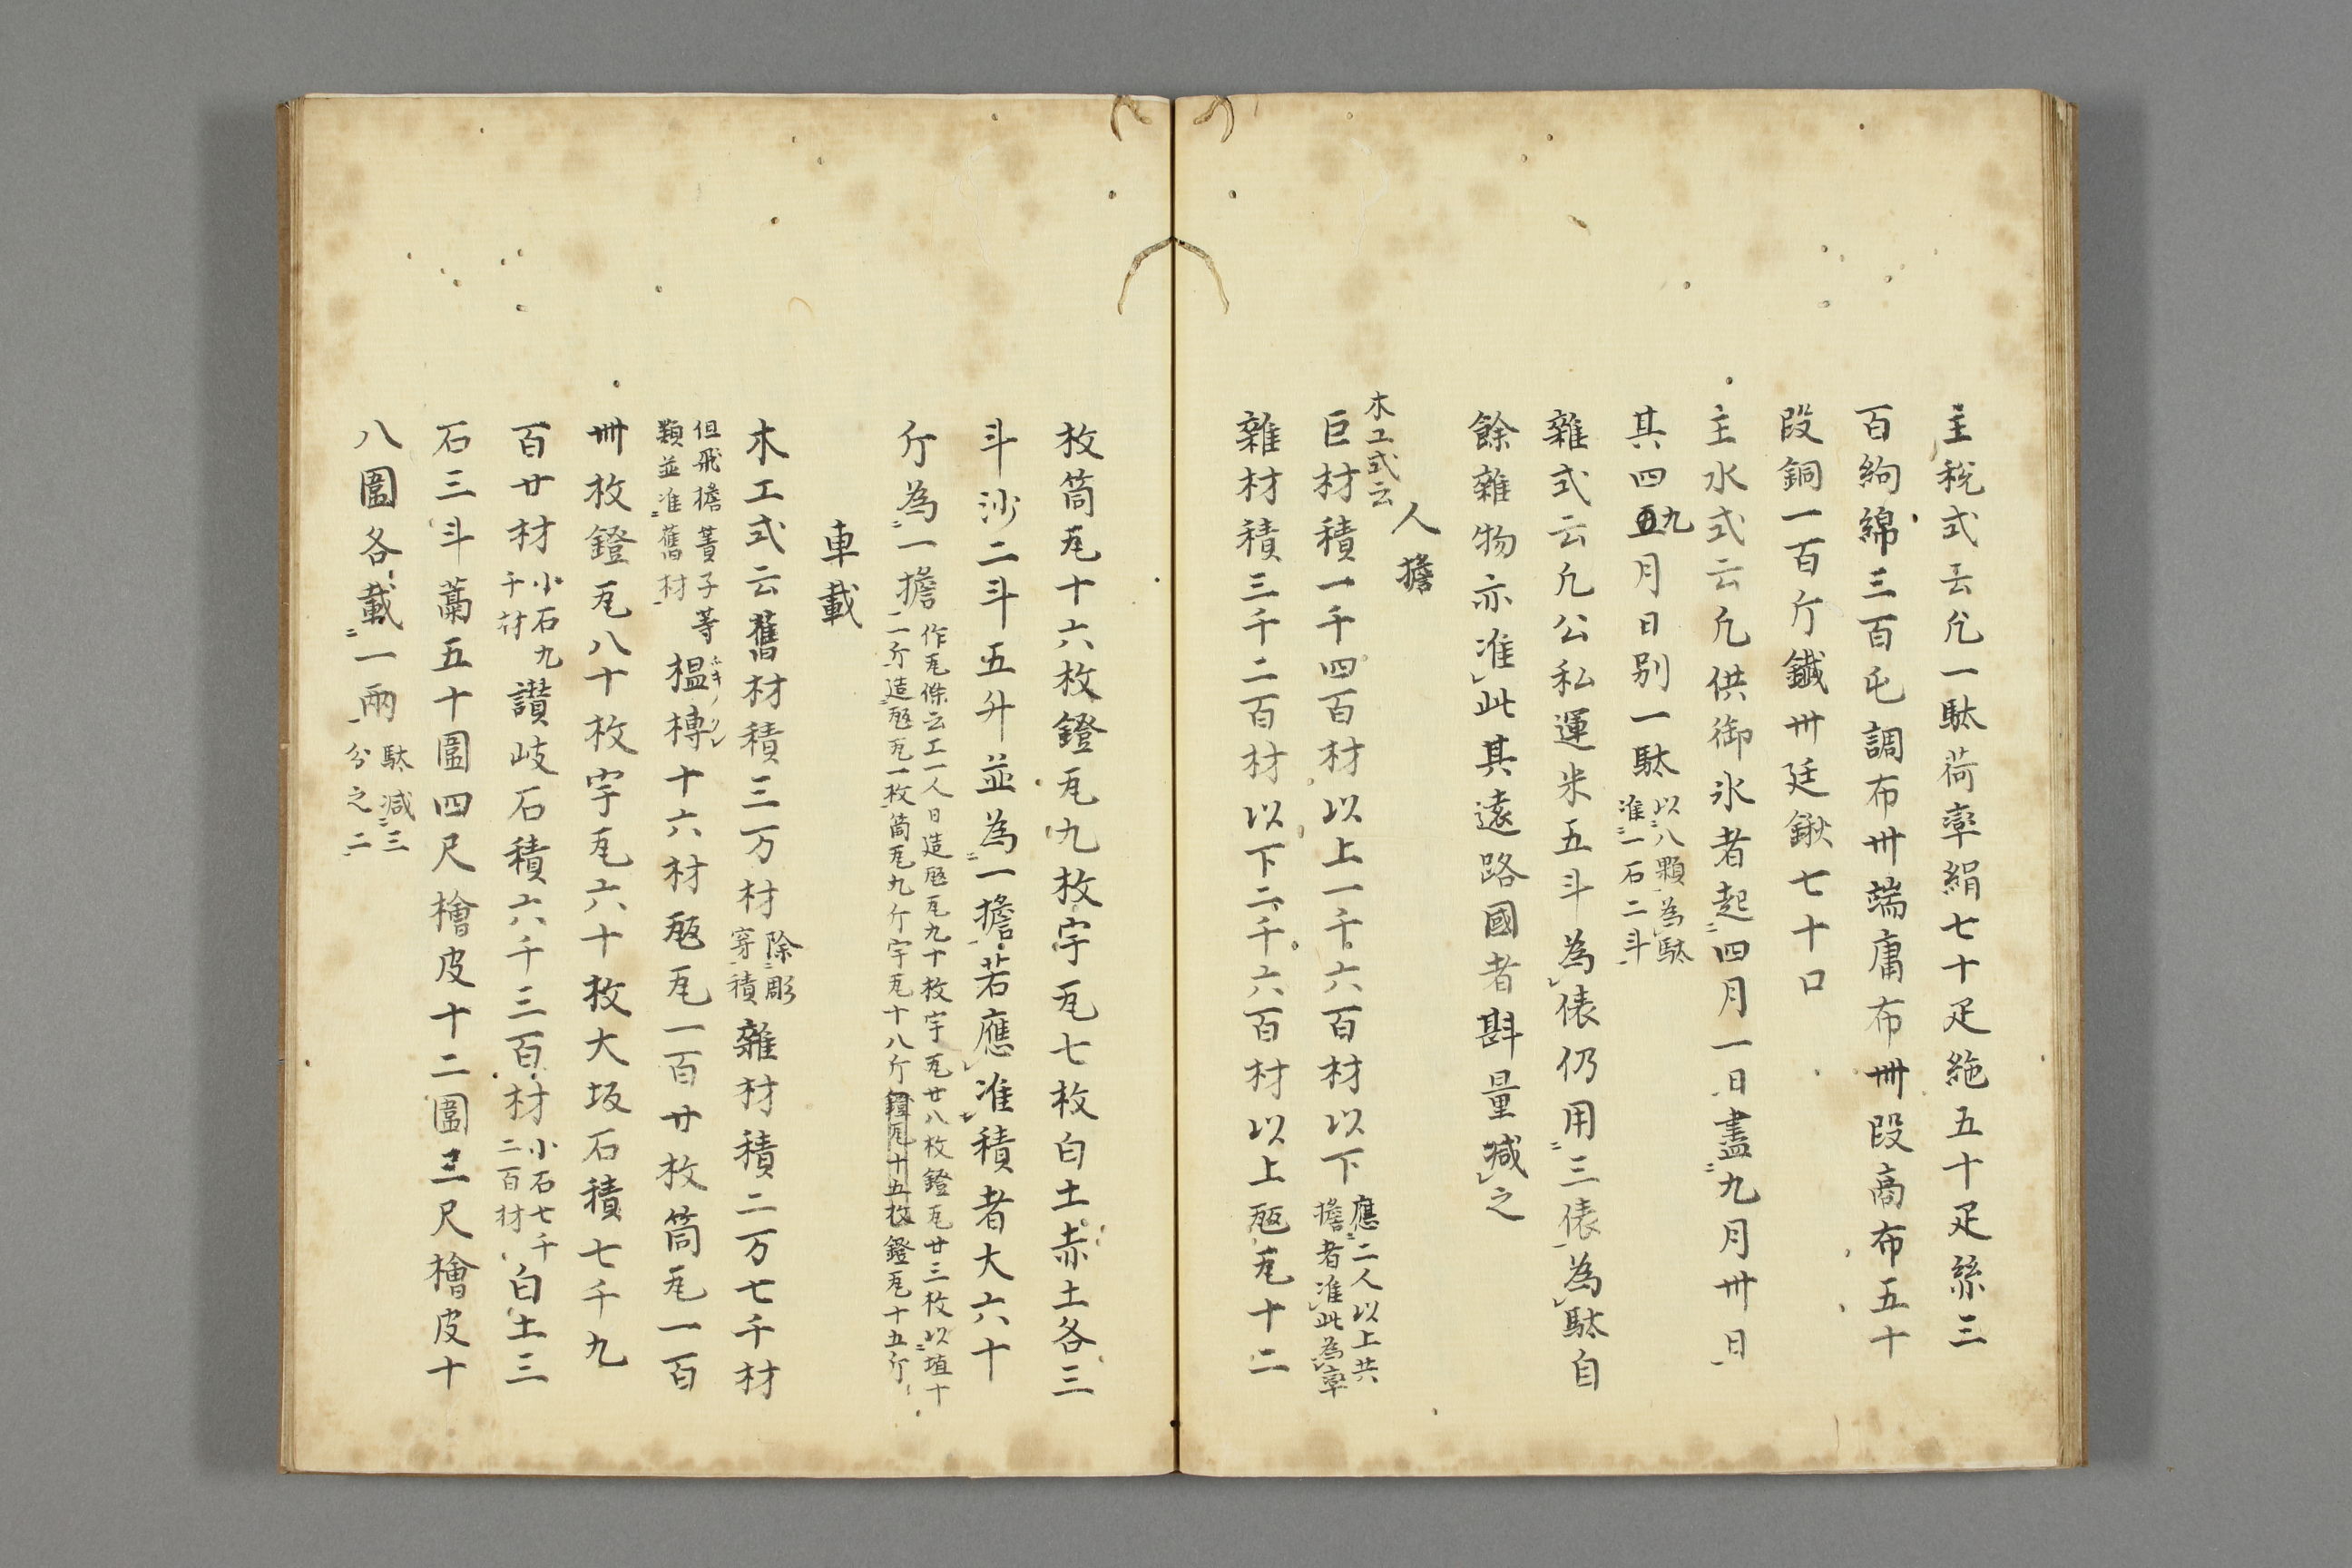 主税式云凢一駄荷率絹七十疋絁五十疋絲三
百絇綿三百屯調布卌端庸布卌段商布五十
段銅一百斤鐵卌廷鍬七十口
主水式云凢供御氷者起四月一日盡九月卅日
其四九月日別一駄以八顆為駄
准一石二斗
雜式云凢公私運米五斗為俵仍用三俵為駄自
餘雜物亦准此其遠路國者斟量減之
人擔
木工式云
巨材積一千四百材以上一千六百材以下應二人以上共
擔者准此為率
雜材積三千二百材以下二千六百材以上瓪瓦十二
枚筒瓦十六枚鐙瓦九枚宇瓦七枚白土赤土各三
斗沙二斗五升並為一擔若應准積者大六十
斤為一擔作瓦條云工一人日造瓪瓦九十枚宇瓦廿八枚鐙瓦廿三枚以埴十
一斤造瓪瓦一枚筒瓦九斤宇瓦十八斤鐙瓦十五斤
車載
木工式云舊材積三万材除彫
穿積雜材積二万七千材
但飛檐簀子等
類並准舊材榲榑十六材瓪瓦一百廿枚筒瓦一百
卌枚鐙瓦八十枚宇瓦六十枚大坂石積七千九
百廿材小石九
千材讃岐石積六千三百材小石七千
二百材白土三
石三斗藁五十圍四尺檜皮十二圍三尺檜皮十
八圍各載一兩駄減三
分之二